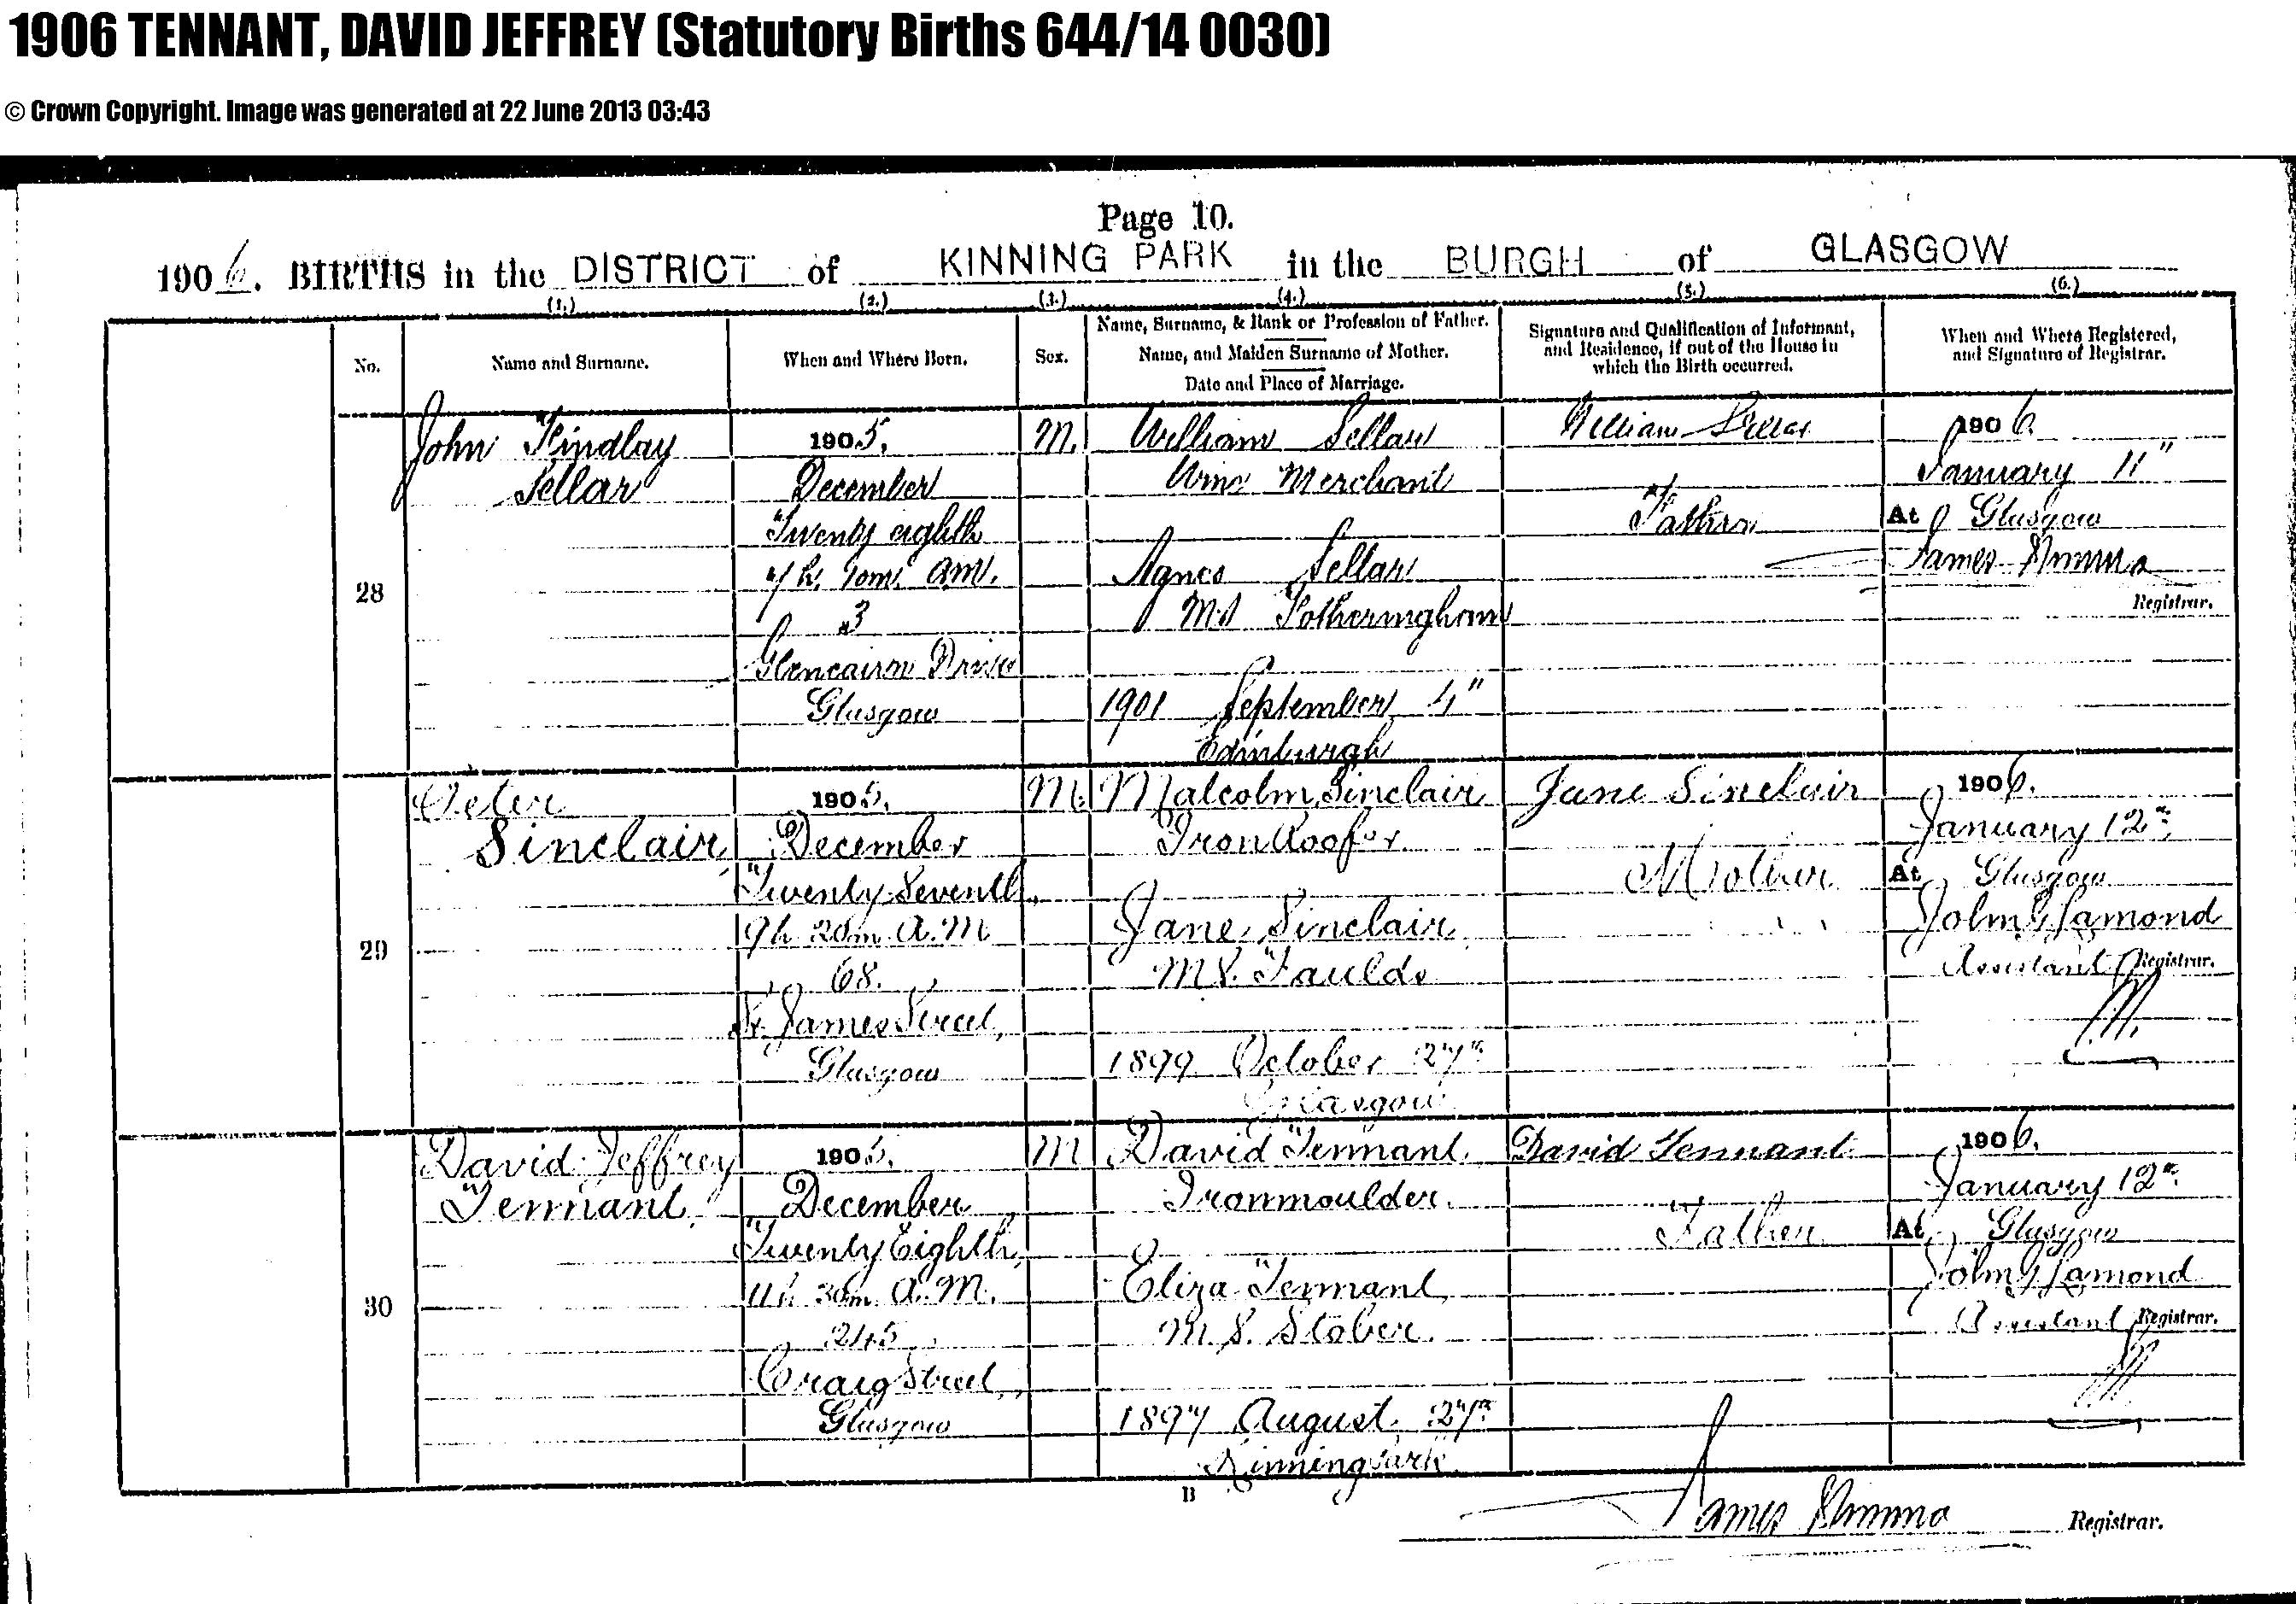 1906 TENNANT, DAVID JEFFREY (Statutory Births 644/14 0030)
© Crown Copyright. Image was generated at 22 June 2013 03:43
Page 10.
1906. BIRTHS in the DISTRICT of KINNING PARK in the BURGH of GLASGOW
(1.) (2.) (3.) (4.) (5.) (6.)
No.
Name and Surname.
When and Where Born.
Sex.
Name, Surname, & Rank or Profession of Father.
Name, and Maiden Surname of Mother.
Date and Place of Marriage.
Signature and Qualification of Informant,
and Residence, if out of the House in
which the Birth occurred.
When and Where Registered,
and Signature of Registrar.
28
John Findlay
Sellar
1905.
December
Twenty eighth
A.M.
3
Glencairn Drive
Glasgow
M.
William Sellar
Wine Merchant
Agnes Sellar
M.S Fotheringham
1901 September 4"
Edinburgh
William Sellar
Father
1906.
January 11"
At Glasgow
James
Registrar.
29
Peter
Sinclair
1905.
December
Twenty Seventh
9h 20m A.M
68.
St. James Street,
Glasgow
M.
Malcolm Sinclair
Iron Roofer
Jane Sinclair
M.S. Faulds
1899 October 27th
Glasgow
Jane Sinclair
Mother
1906.
January 12th
At Glasgow
John Lamond
Assistant Registrar.
30
David Jeffrey
Tennant
1905.
December
Twenty Eighth
11h 30m A.M.
245
Craig Street,
Glasgow
M
David Tennant
Ironmoulder.
Eliza Tennant
M.S. Stober.
1897 August 27th
Kinning Park
David Tennant
Father
1906.
January 12th
At Glasgow
John Lamond
Assistant Registrar.
B
James
Registrar.